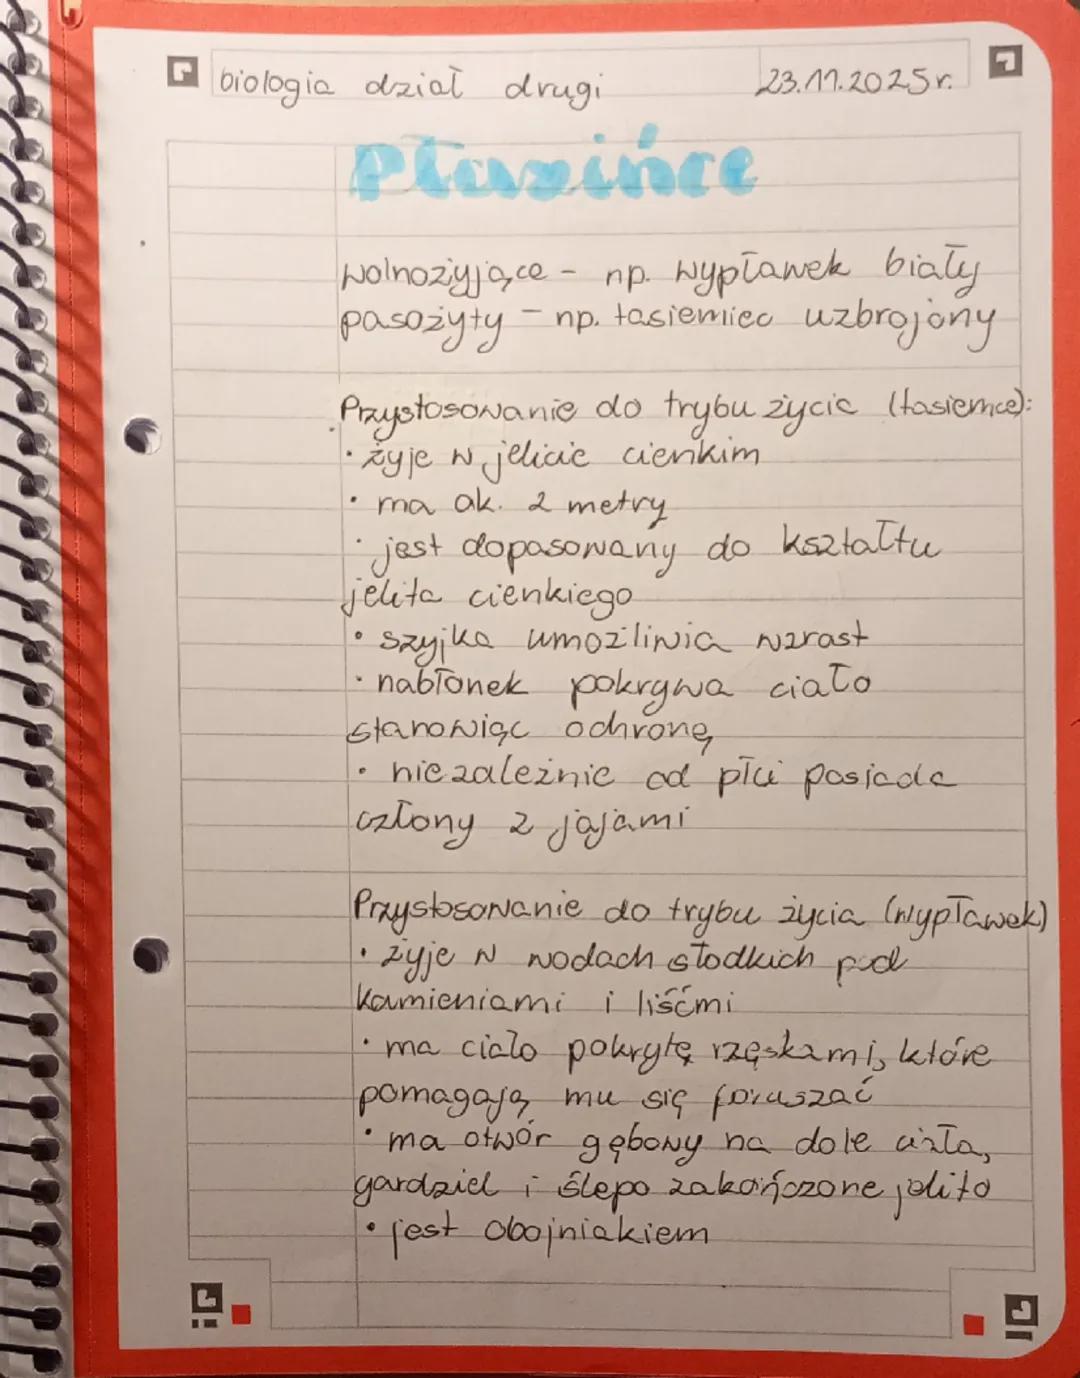 biologia dział drugi 23.11.2025r.
Płazińce
wolnożyjące - np. wypławek biały
pasożyty - np. tasiemiec uzbrojony
Przystosowanie do trybu życia (tasiemce):
• żyje w jelicie cienkim
• ma ok. 2 metry
• jest dopasowany do kształtu
jelita cienkiego
• szyjka umożliwia wzrost
• nabłonek pokrywa ciało
stanowiąc ochronę
• niezależnie od płci posiada
człony z jajami
Przystosowanie do trybu życia (wypławek)
• żyje w wodach słodkich pod
kamieniami i liśćmi
• ma ciało pokrytę rzęskami, które
pomagają mu się poruszać
• ma otwór gębowy na dole ciała,
gardziel i ślepo zakończone jelito
• jest obojniakiem